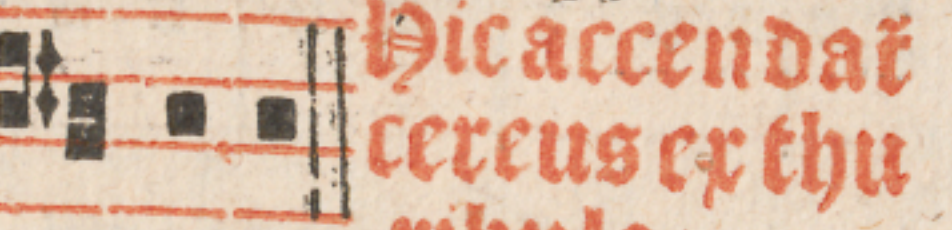 Hic accendat̃
cereus ex thu